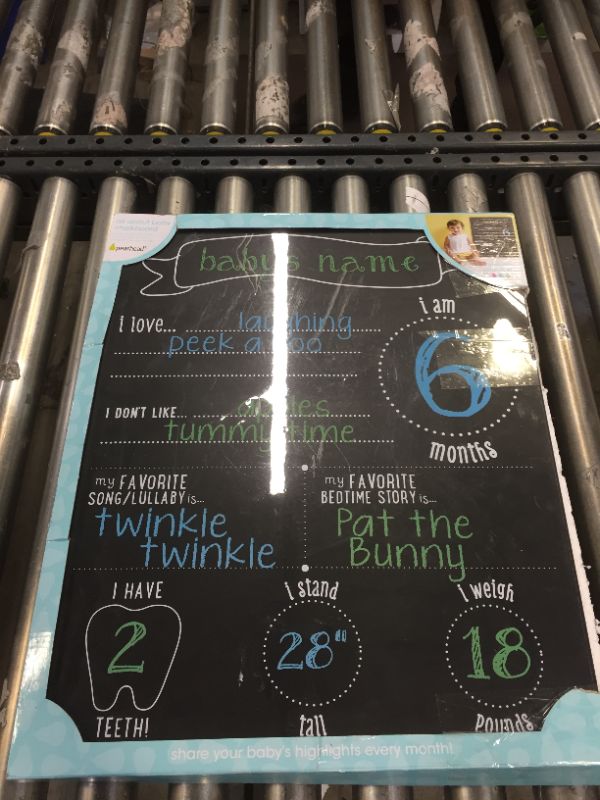 pearhead
baby's name
i am
I love... laughing
peek a boo
6
I DON'T LIKE...
tummy time
months
my FAVORITE
SONG/LULLABY is...
twinkle
twinkle
my FAVORITE
BEDTIME STORY is...
Pat the
Bunny
I HAVE
2
TEETH!
i stand
28"
tall
i weigh
18
POUNDS
share your baby's highlights every month!